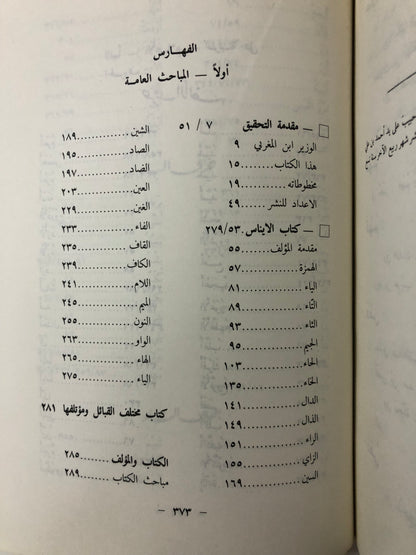 الفهارس
أولاً — المباحث العامة
— مقدمة التحقيق ٧ / ٥١
الوزير ابن المغربي ٩
هذا الكتاب ........ ١٥
مخطوطاته ........ ١٩
الاعداد للنشر ........ ٤٩
— كتاب الايناس . ٢٧٩/٥٣
مقدمة المؤلف ........ ٥٥
الهمزة ........ ٥٧
الباء ........ ٨١
التّاء ........ ٨٩
الثاء ........ ٩٣
الجيم ........ ٩٥
الحاء ........ ١٠٣
الخاء ........ ١٣٥
الدال ........ ١٤١
الذال ........ ١٤٩
الراء ........ ١٥١
الزاي ........ ١٥٥
السين ........ ١٦٩
الشين ........ ١٨٩
الصاد ........ ١٩٥
الضاد ........ ١٩٧
العين ........ ٢٠٣
الغين ........ ٢٢٩
الفاء ........ ٢٣٣
القاف ........ ٢٣٥
الكاف ........ ٢٣٩
اللام ........ ٢٤١
الميم ........ ٢٤٥
النون ........ ٢٥٥
الواو ........ ٢٦٣
الهاء ........ ٢٦٥
الياء ........ ٢٧٥
كتاب مختلف القبائل ومؤتلفها ٢٨١
الكتاب والمؤلف ........ ٢٨٥
مباحث الكتاب ........ ٢٨٩
— ٣٧٣ —